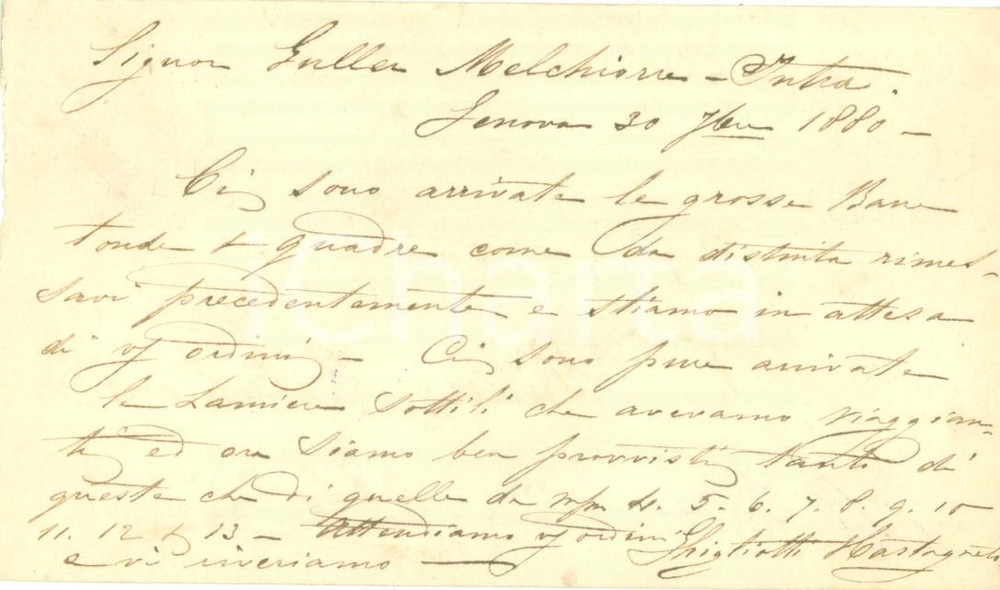 Signor Guller Melchiorre - Intra.
Genova 30 7bre 1880 -
Ci sono arrivate le grosse Barre
tonde & quadre come da distinta rimes-
savi precedentemente e stiamo in attesa
di vj ordini - Ci sono pure arrivate
le Lamiere Sottili che avevamo viaggian-
ti ed ora siamo ben provvisti tanto di
queste che di quelle da m/m 4. 5. 6. 7. 8. 9. 10
11. 12 & 13 - Attendiamo vj ordini
e vi riveriamo - Ghigliotti
iCharta